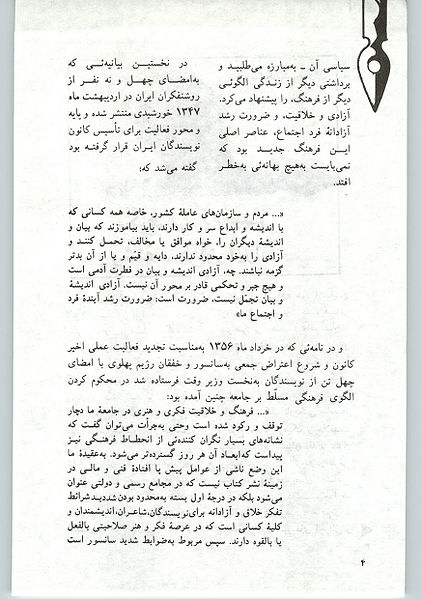 سیاسی آن ـ به‌مبارزه می‌طلبید و
برداشتی دیگر از زندگی الگوئی
دیگر از فرهنگ، را پیشنهاد می‌کرد.
آزادی و خلاقیت، و ضرورت رشد
آزادانهٔ فرد اجتماع، عناصر اصلی
این فرهنگ جدید بود که
نمی‌بایست به‌هیچ بهانه‌ئی به‌خطر
افتد.
در نخستین بیانیه‌ئی که
به‌امضای چهل و نه نفر از
روشنفکران ایران در اردیبهشت ماه
۱۳۴۷ خورشیدی منتشر شده و پایه
و محور فعالیت برای تأسیس کانون
نویسندگان ایران قرار گرفته بود
گفته می‌شد که:
«... مردم و سازمان‌های عاملهٔ کشور، خاصه همه کسانی که
با اندیشه و ابداع سر و کار دارند، باید بیاموزند که بیان و
اندیشهٔ دیگران را، خواه موافق یا مخالف، تحمل کنند و
آزادی را به‌خود محدود ندارند، دایه و قیّم و یا از آن بدتر
گزمه نباشند. چه، آزادی اندیشه و بیان در فطرت آدمی است
و هیچ جبر و تحکمی قادر بر محور آن نیست. آزادی اندیشهٔ
و بیان تجمّل نیست، ضرورت است: ضرورت رشد آیندهٔ فرد
و اجتماع ما»
و در نامه‌ئی که در خرداد ماه ۱۳۵۶ به‌مناسبت تجدید فعالیت عملی اخیر
کانون و شروع اعتراض جمعی به‌سانسور و خفقان رژیم پهلوی با امضای
چهل تن از نویسندگان به‌نخست وزیر وقت فرستاده شد در محکوم کردن
الگوی فرهنگی مسلّط بر جامعه چنین آمده بود:
«... فرهنگ و خلاقیت فکری و هنری در جامعهٔ ما دچار
توقف و رکود شده است وحتی به‌جرأت می‌توان گفت که
نشانه‌های بسیار نگران کننده‌ئی از انحطاط فرهنگی نیز
پیداست که‌ابعاد آن هر روز گسترده‌تر می‌شود. به‌عقیدهٔ ما
این وضع ناشی از عوامل پیش پا افتادهٔ فنی و مالی در
زمینهٔ نشر کتاب نیست که در مجامع رسمی و دولتی عنوان
می‌شود بلکه در درجهٔ اول بسته به‌محدود بودن‌شدیدشرائط
تفکر خلاق و آزادانه برای‌نویسندگان،شاعران،اندیشمندان و
کلیهٔ کسانی است که در عرصهٔ فکر و هنر صلاحیتی بالفعل
یا بالقوه دارند. سپس مربوط به‌ضوابط شدید سانسور است
۴